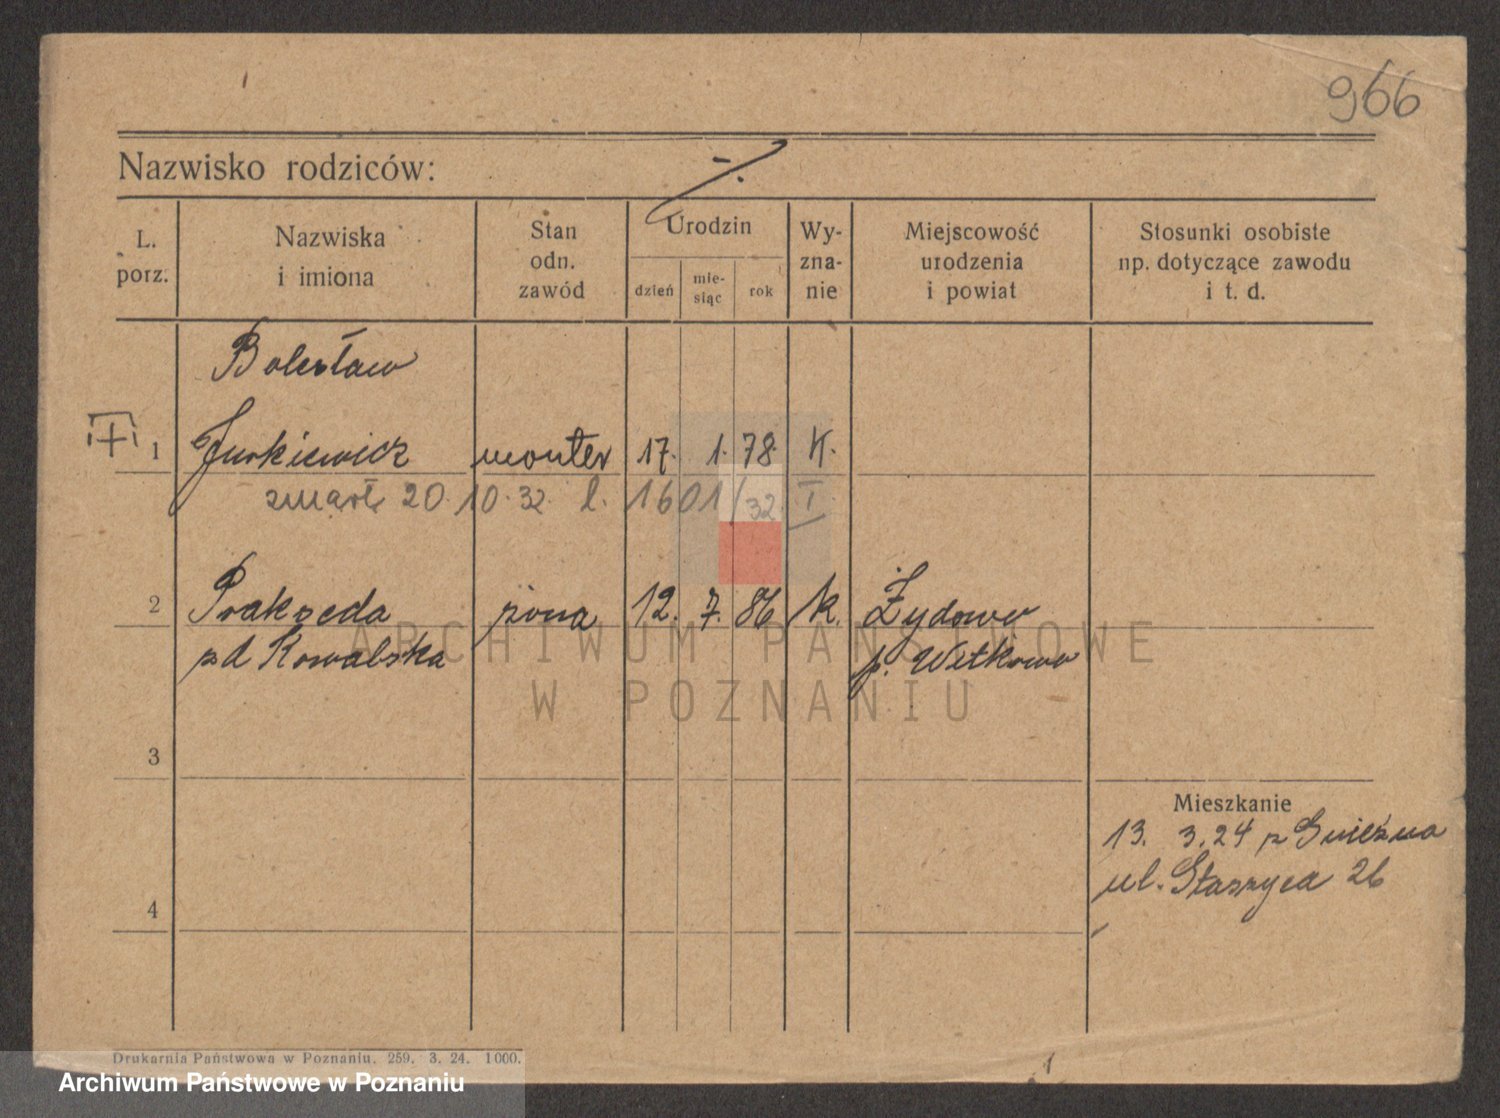 966
Nazwisko rodziców: -/.
L. porz. Nazwiska i imiona Stan odn. zawód Urodzin dzień mie-siąc rok Wy-zna-nie Miejscowość urodzenia i powiat Stosunki osobiste np. dotyczące zawodu i t. d.
Bolesław
1 Jurkiewicz monter 17. 1. 78. K.
zmarł 20.10.32 l. 1601/32 I
2 Prakseda żona 12. 7. 86 k. Żydowo
zd Kowalska p. Witkowo
ARCHIWUM PAŃSTWOWE
W POZNANIU
3
Mieszkanie
13. 3.24 z Gniezna
ul. Staszyca 26
4
Drukarnia Państwowa w Poznaniu. 259. 3. 24. 1000.
Archiwum Państwowe w Poznaniu